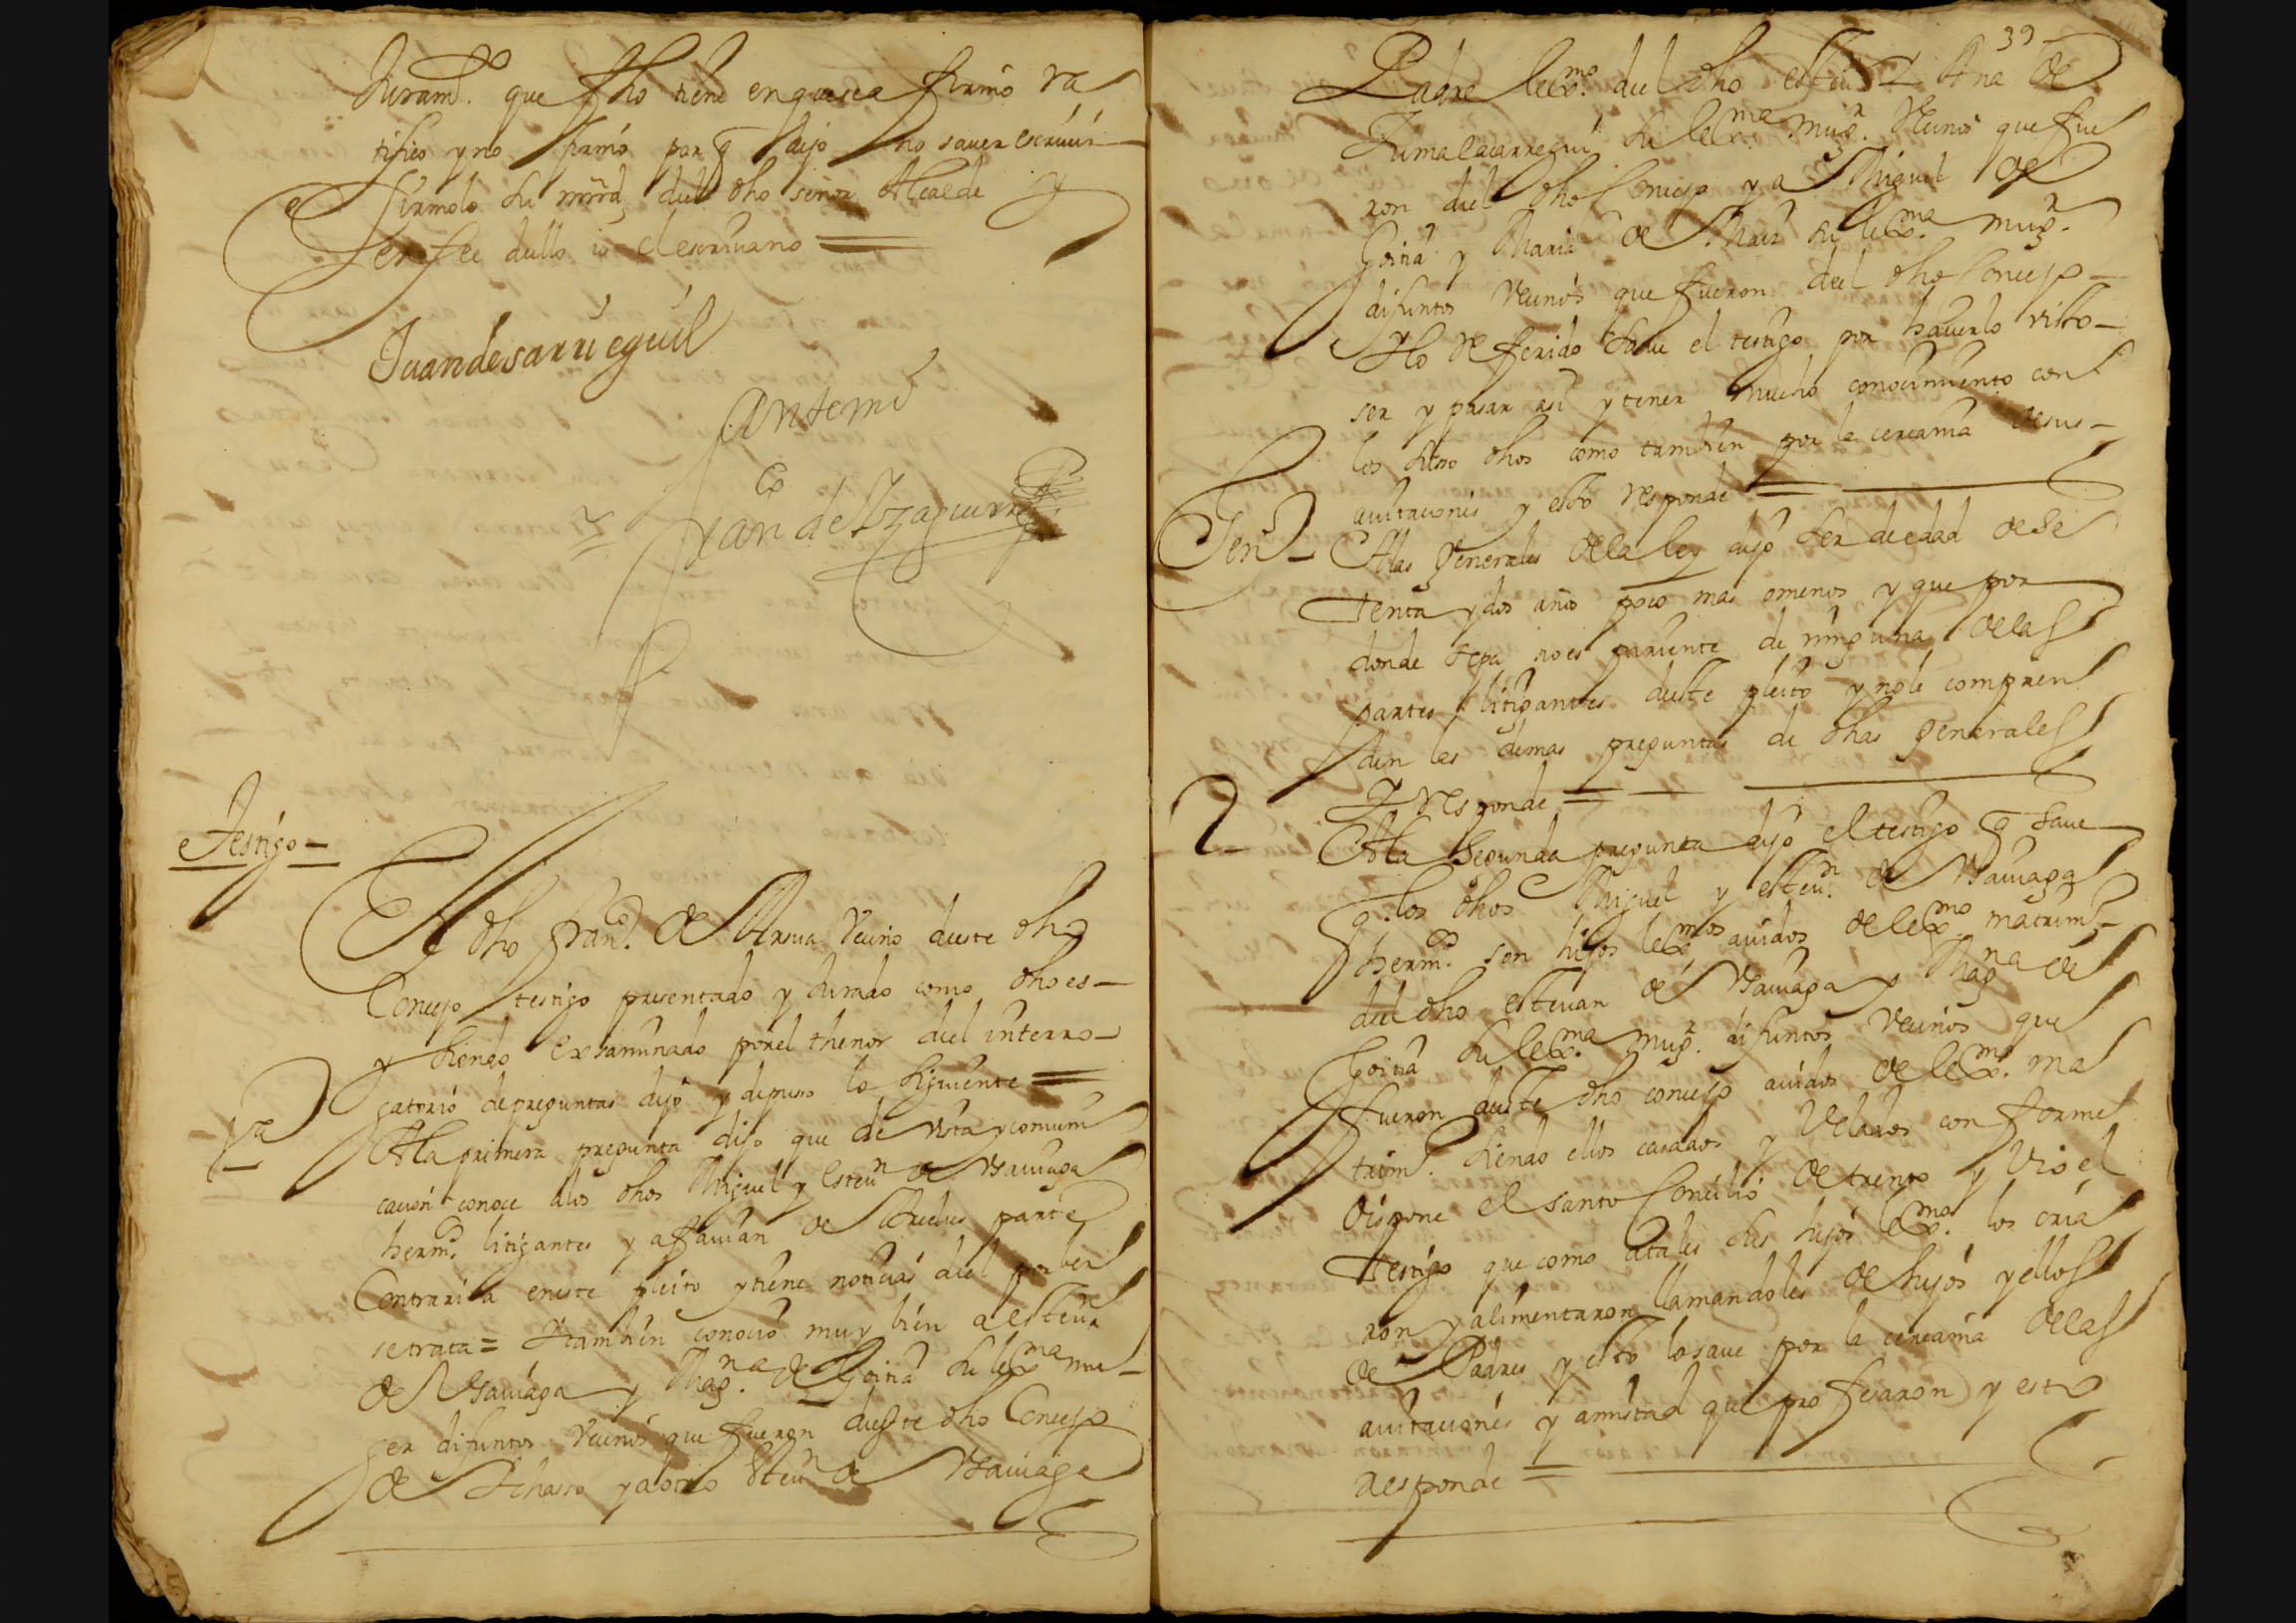 Juramto. que fho tiene en que se afirmó ra
tifico y no firmó por q dijo no saver escriuir
firmolo su mrd del dho señor Alcalde y
en fee dello io el escriuano =
Juan de saruegui
Ante mi
Fran.co de Yzaguirre
Testigo
El dho fran.co de Ursua veçino deeste dho
Concejo testigo presentado y Jurado como dho es
y siendo exsaminado por el thenor del interro
gatorio de preguntas dijo y depuso lo siguiente =
1a
A la primera pregunta dijo que de vista y comuni
cacion conoce a los dhos Miguel y Esteun de Usauiaga
herms. litigantes y a fauian de parte
Contraria en este pleito y tiene noticias del por ber
se trata = Y tambien conoció muy bien a esteun
de Usauiaga y Magna. de Goiná su legma mu
ger difuntos veçinos que fueron deeste dho Concejo
de Ychasso y a otro Esteun de Usauiaga
39
Padre legmo. del dho esteun y Ana de
Zumalacarregui su legma mugr. veçinos que fue
ron del dho Concejo y a Miguel de
Goiná y Maria de su legma. mugr.
difuntos veçinos que fueron del dho Concejo
Y lo referido saue el testigo por hauerlo visto
ser y pasar asi y tener mucho conocimiento con
los suso dhos como tambien por la cercania de sus
auitaciones y esto responde =
Gen
A las generales de la ley dijo ser de edad de se
tenta y dos años poco mas o menos y que por
donde sepa no es pariente de ninguna de las
partes litigantes deeste pleito y no le compren
den las demas preguntas de dhas generales
Y responde =
2
A la segunda pregunta dijo el testigo q saue
q los dhos Miguel y esteun. de Usauiaga
hermos. son hijos legmos auidos de legmo. matrimo
del dho esteuan de Usauiaga y Magna de
Goiná su legma. mugr. difuntos veçinos que
fueron deeste dho concejo auidos de legmo. ma
trimo. siendo ellos casados y Velados conforme
dispone el santo Concilio de trento y Vio el
testigo que como a tales sus hijos legmos. los cria
ron y alimentaron llamandoles de hijos y ellos
de Padres y esto lo saue por la cercania de las
auitaciones y amistad que profesaron y esto
responde =